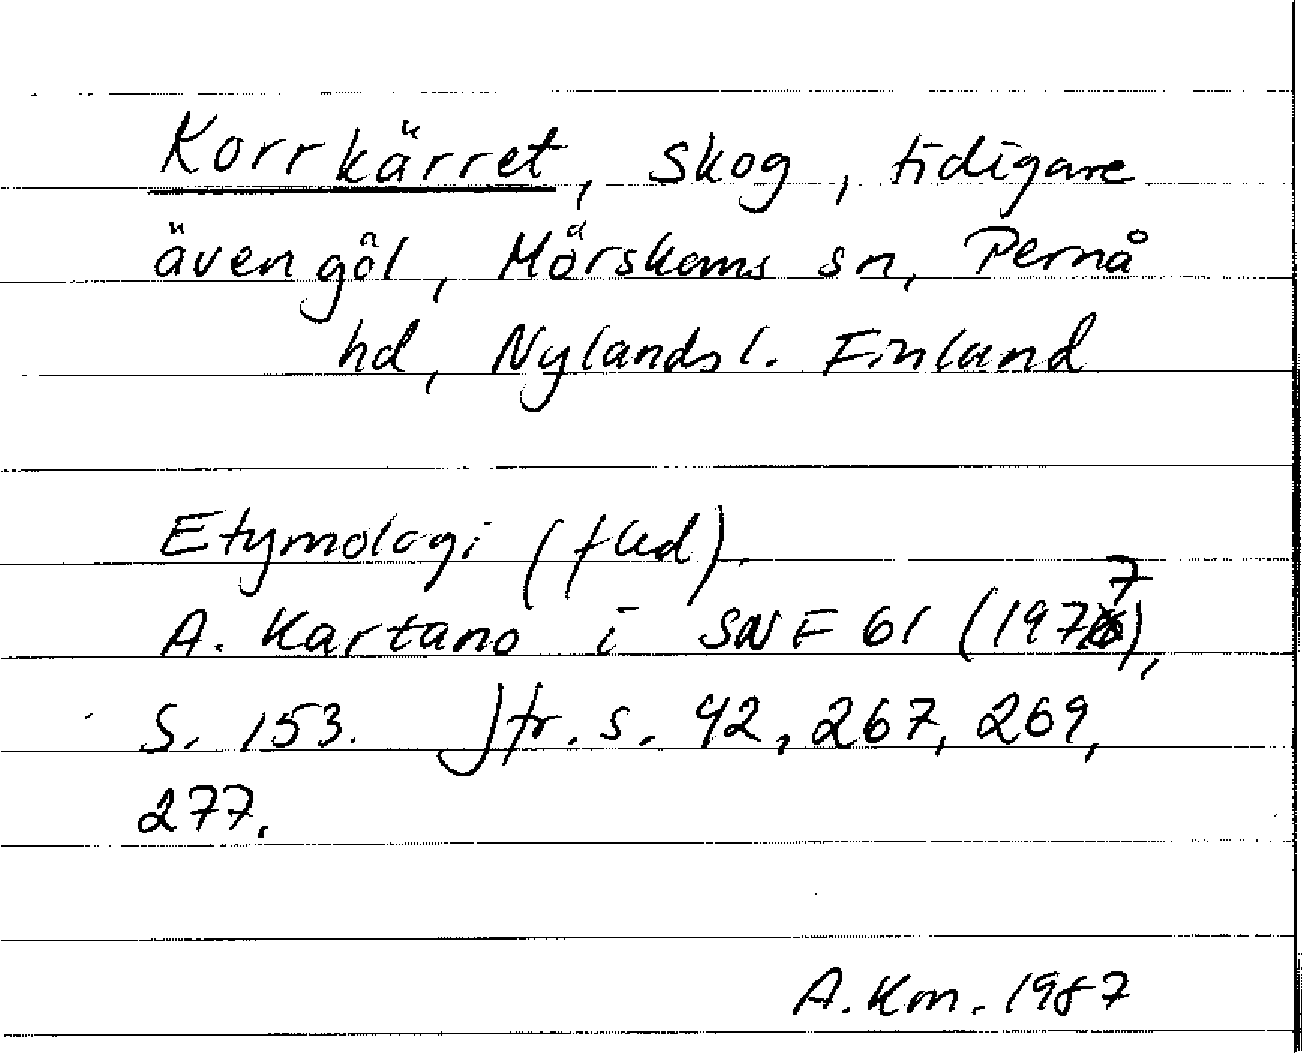 Korrkärret, skog, tidigare
även göl, Mörskoms sn, Pernå
hd, Nylands l. Finland
Etymologi (fled).
A. Kartano i SNF 61 (1977),
S. 153. Jfr. s. 42, 267, 269,
277.
A. Km. 1987